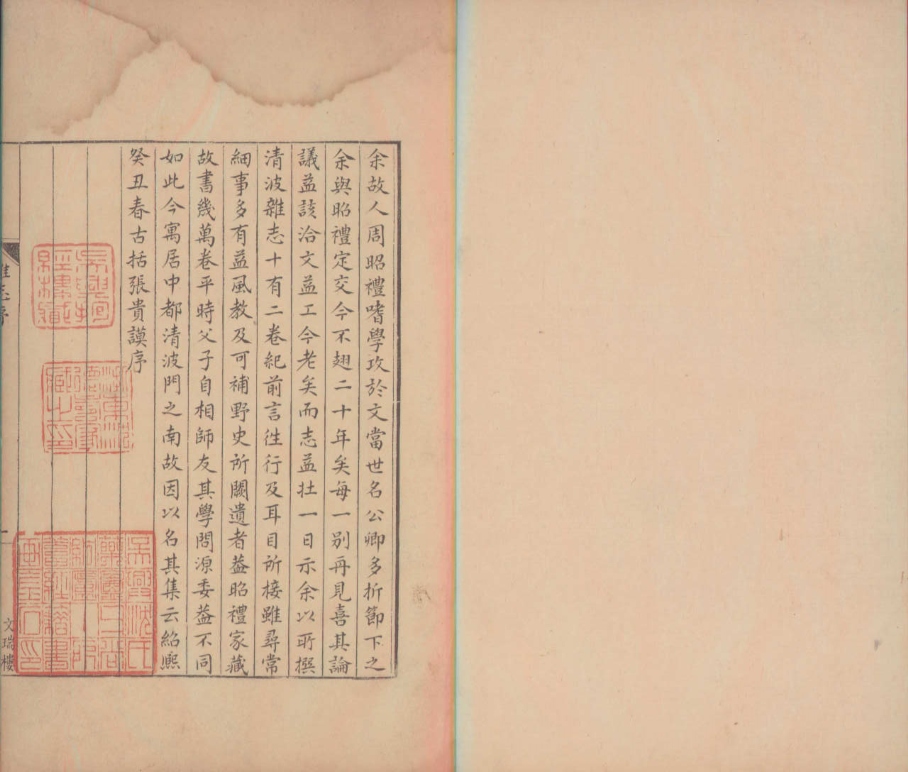 余故人周昭禮嗜學攻於文當世名公卿多折節下之
余與昭禮定交今不翅二十年矣每一別再見喜其論
議益該洽文益工今老矣而志益壯一日示余以所撰
清波雜志十有二卷紀前言往行及耳目所接雖尋常
細事多有益風教及可補野史所闕遺者蓋昭禮家藏
故書幾萬卷平時父子自相師友其學問源委蓋不同
如此今寓居中都清波門之南故因以名其集云紹熙
癸丑春古括張貴謨序
雜志序
一
文瑞樓